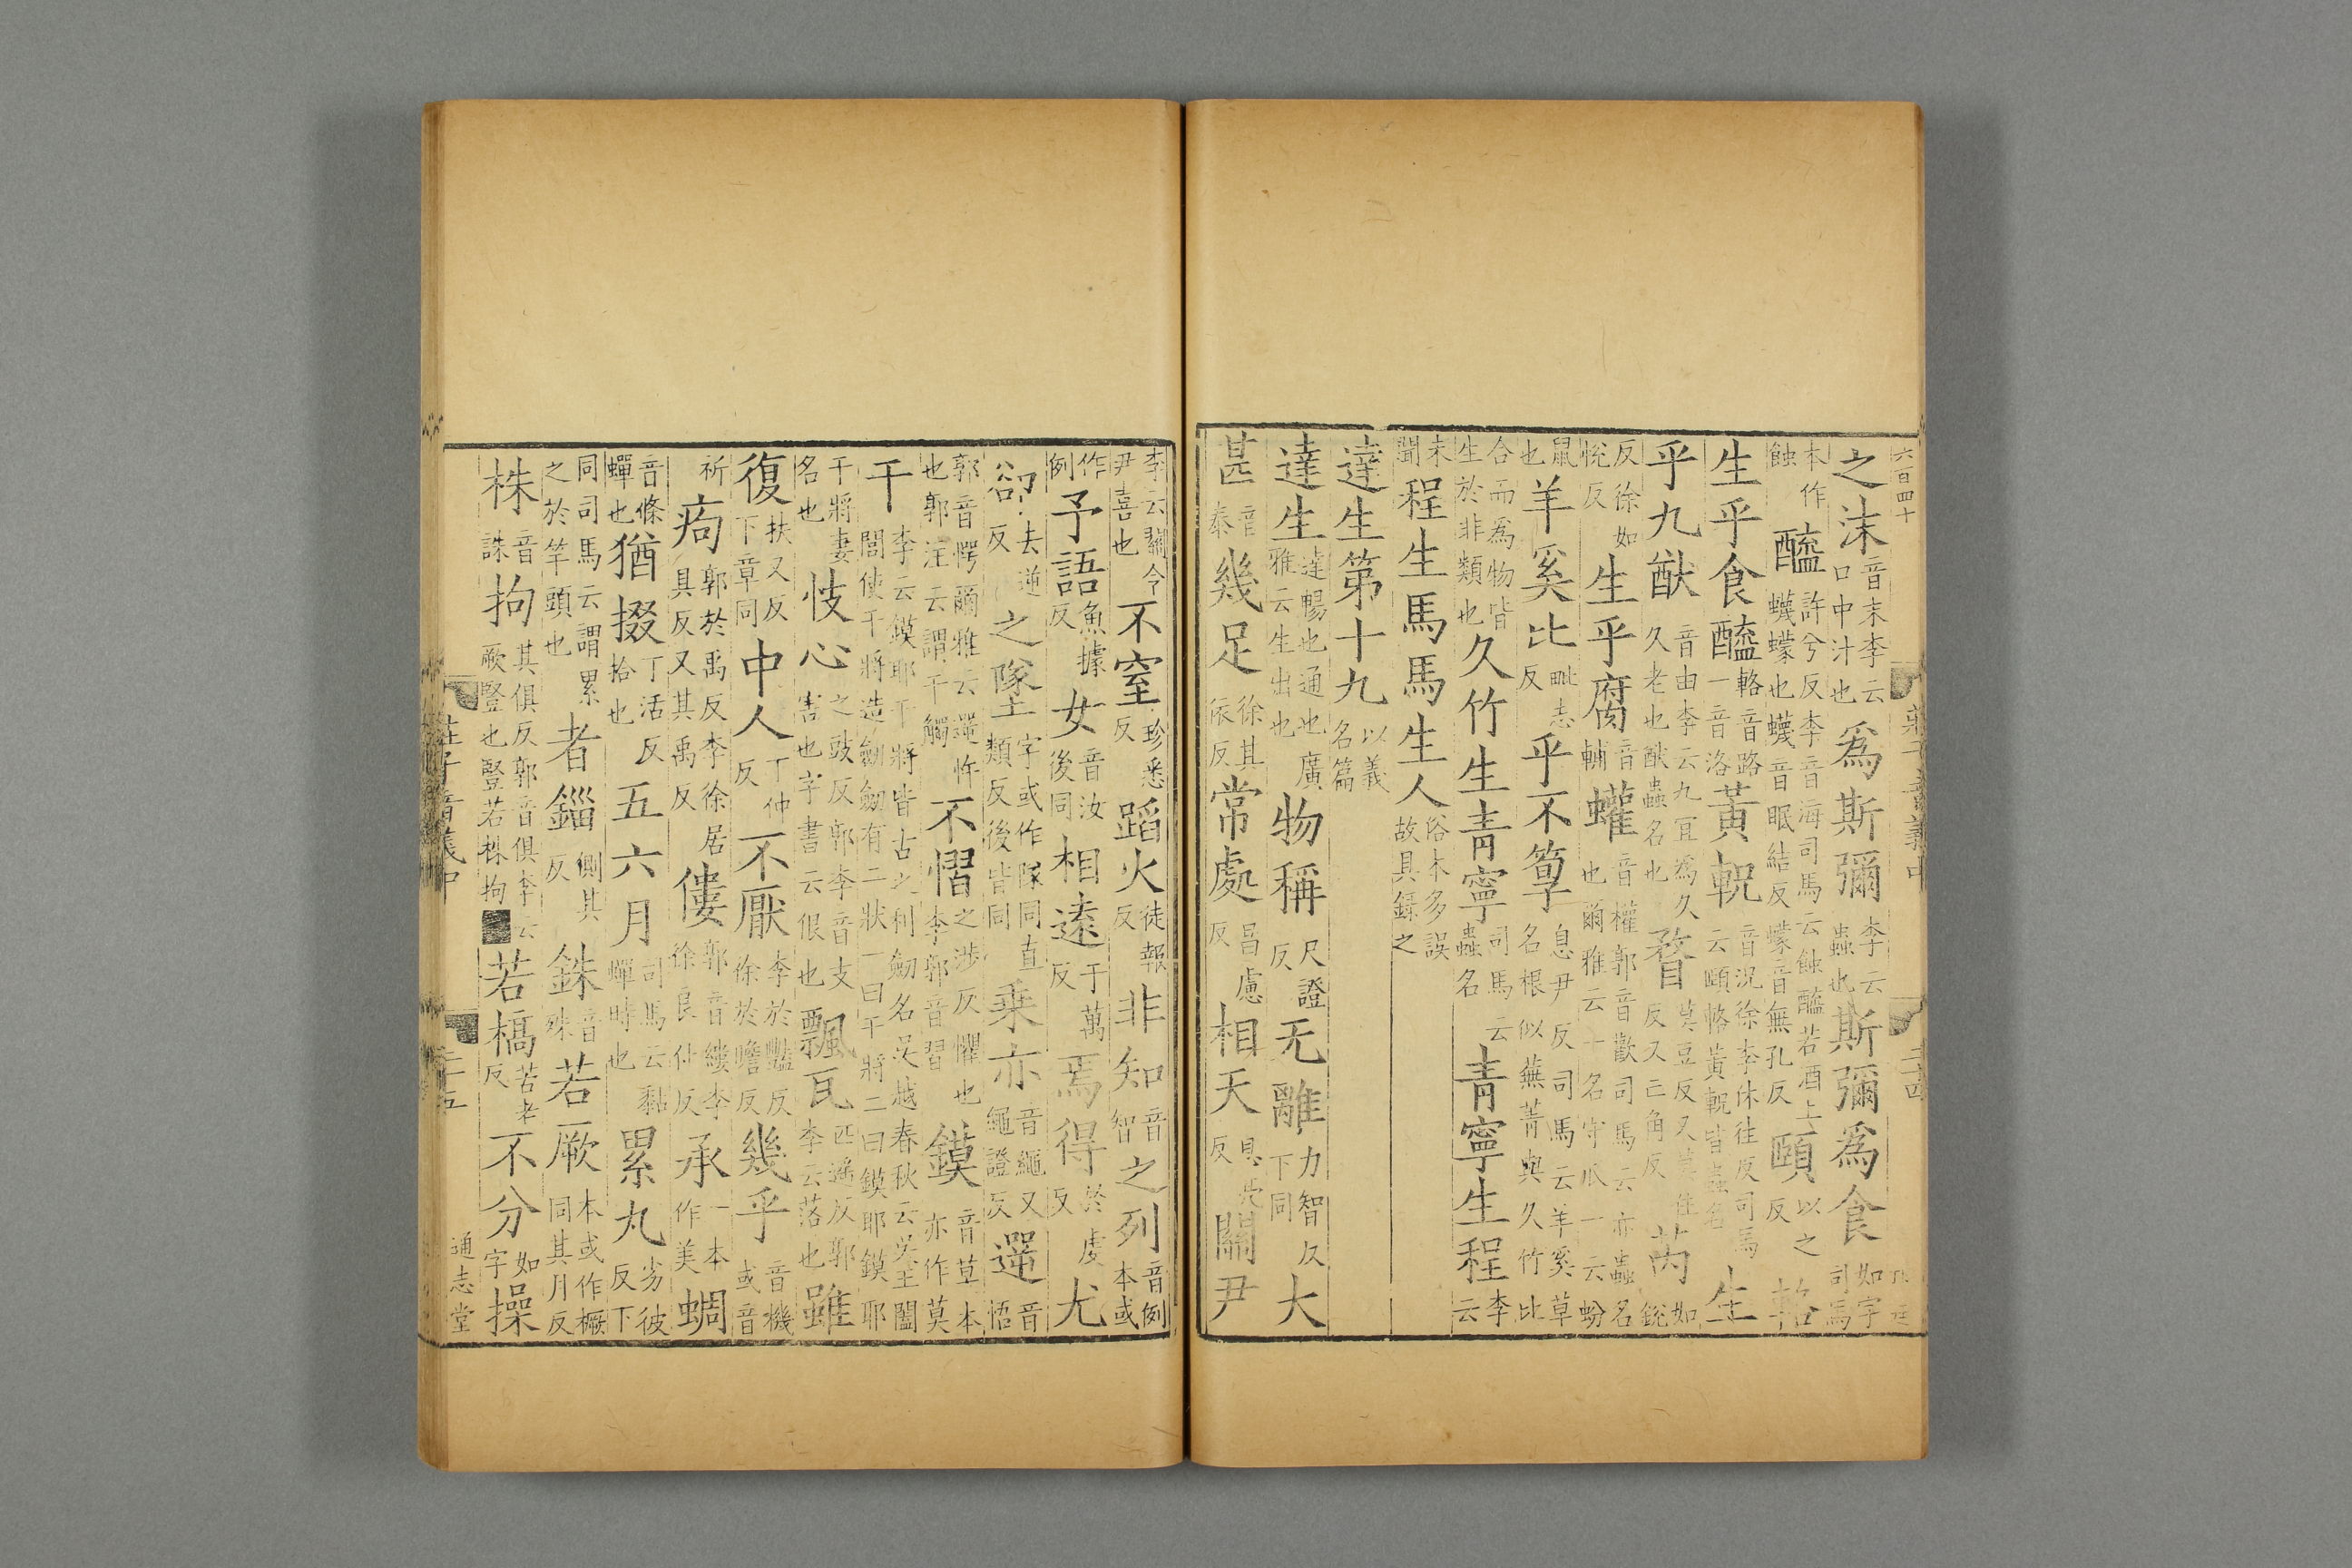 六百四十
莊子音義中 二十四
之沫音末李云口中汁也爲斯彌李云蟲也斯彌爲食如字司馬
本作蝕醯許兮反李音海司馬云蝕醯若酒上蠛蠓也蠛音眠結反蠓音無孔反頤以之反輅
生乎食醯輅音路一音洛黃軦音況徐李休往反司馬云頤輅黃軦皆蟲名生
乎九猷音由李云九宜爲久久老也猷蟲名也瞀莫豆反又莫住反又亡角反芮如銳
反徐如悅反生乎腐音輔蠸音權郭音歡司馬云亦蟲名也爾雅云一名守瓜一云蚡
鼠也羊奚比毗志反乎不箰息尹反司馬云羊奚草名根似蕪菁與久竹比
合而爲物皆生於非類也久竹生青寧司馬云蟲名青寧生程李云
未聞程生馬馬生人俗本多誤故具錄之
達生第十九以義名篇
達生達暢也通也廣雅云生出也物稱尺證反无離力智反下同大
甚音泰幾足徐其依反常處昌慮反相天息亮反關尹
李云關令尹喜也不窒珍悉反蹈火徒報反非知音智之列音例本或
作例予語魚據反女音汝後同相遠于萬反焉得於虔反尤
卻去逆反之墜字或作隊同直類反後皆同乘亦音繩又繩證反遌音悟
郭音愕爾雅云遻忤也郭注云謂干觸不慴之涉反懼也李郭音習鏌音莫本亦作莫
干李云鏌耶干將皆古之利劒名吳越春秋云吳王闔閭使干將造劒劒有二狀一曰干將二曰鏌耶鏌耶
干將妻名也忮心之豉反郭李音支害也字書云佷也飄瓦匹遙反郭李云落也雖
復扶又反下章同中人丁仲反不厭李於豔反徐於嚈反幾乎音機或音
祈痀郭於禹反李徐居具反又其禹反僂郭音縷李徐良付反承一本作美蜩
音條蟬也猶掇丁活反拾也五六月司馬云黏蟬時也累丸劣彼反下
同司馬云謂累之於竿頭也者錙側其反銖音殊若厥本或作橛同其月反
株音誅拘其俱反郭音俱李云厥豎也豎若株拘■若槁苦老反不分如字操
莊子音義中 二十五 通志堂